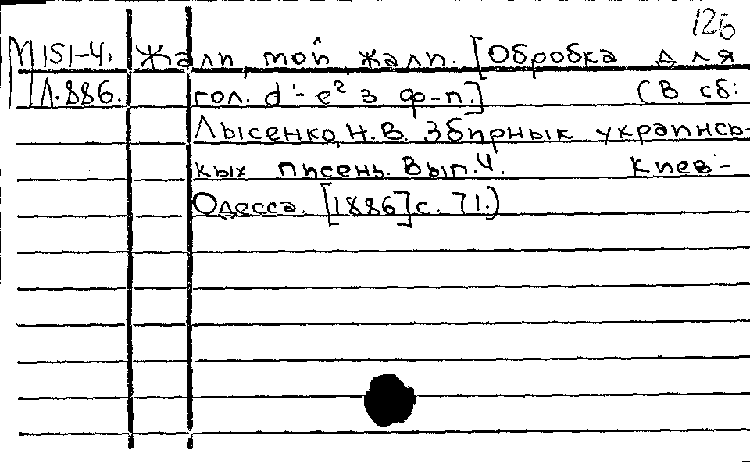 126
М 151-4. Жалі мой жалі. [Обробка для
Л.886. гол. d'-e² з ф-п.] (В сб:
Лысенко, Н.В. Збирнык украинсь-
кых писень. Вып.4. Киев-
Одесса. [1886] с. 71.)